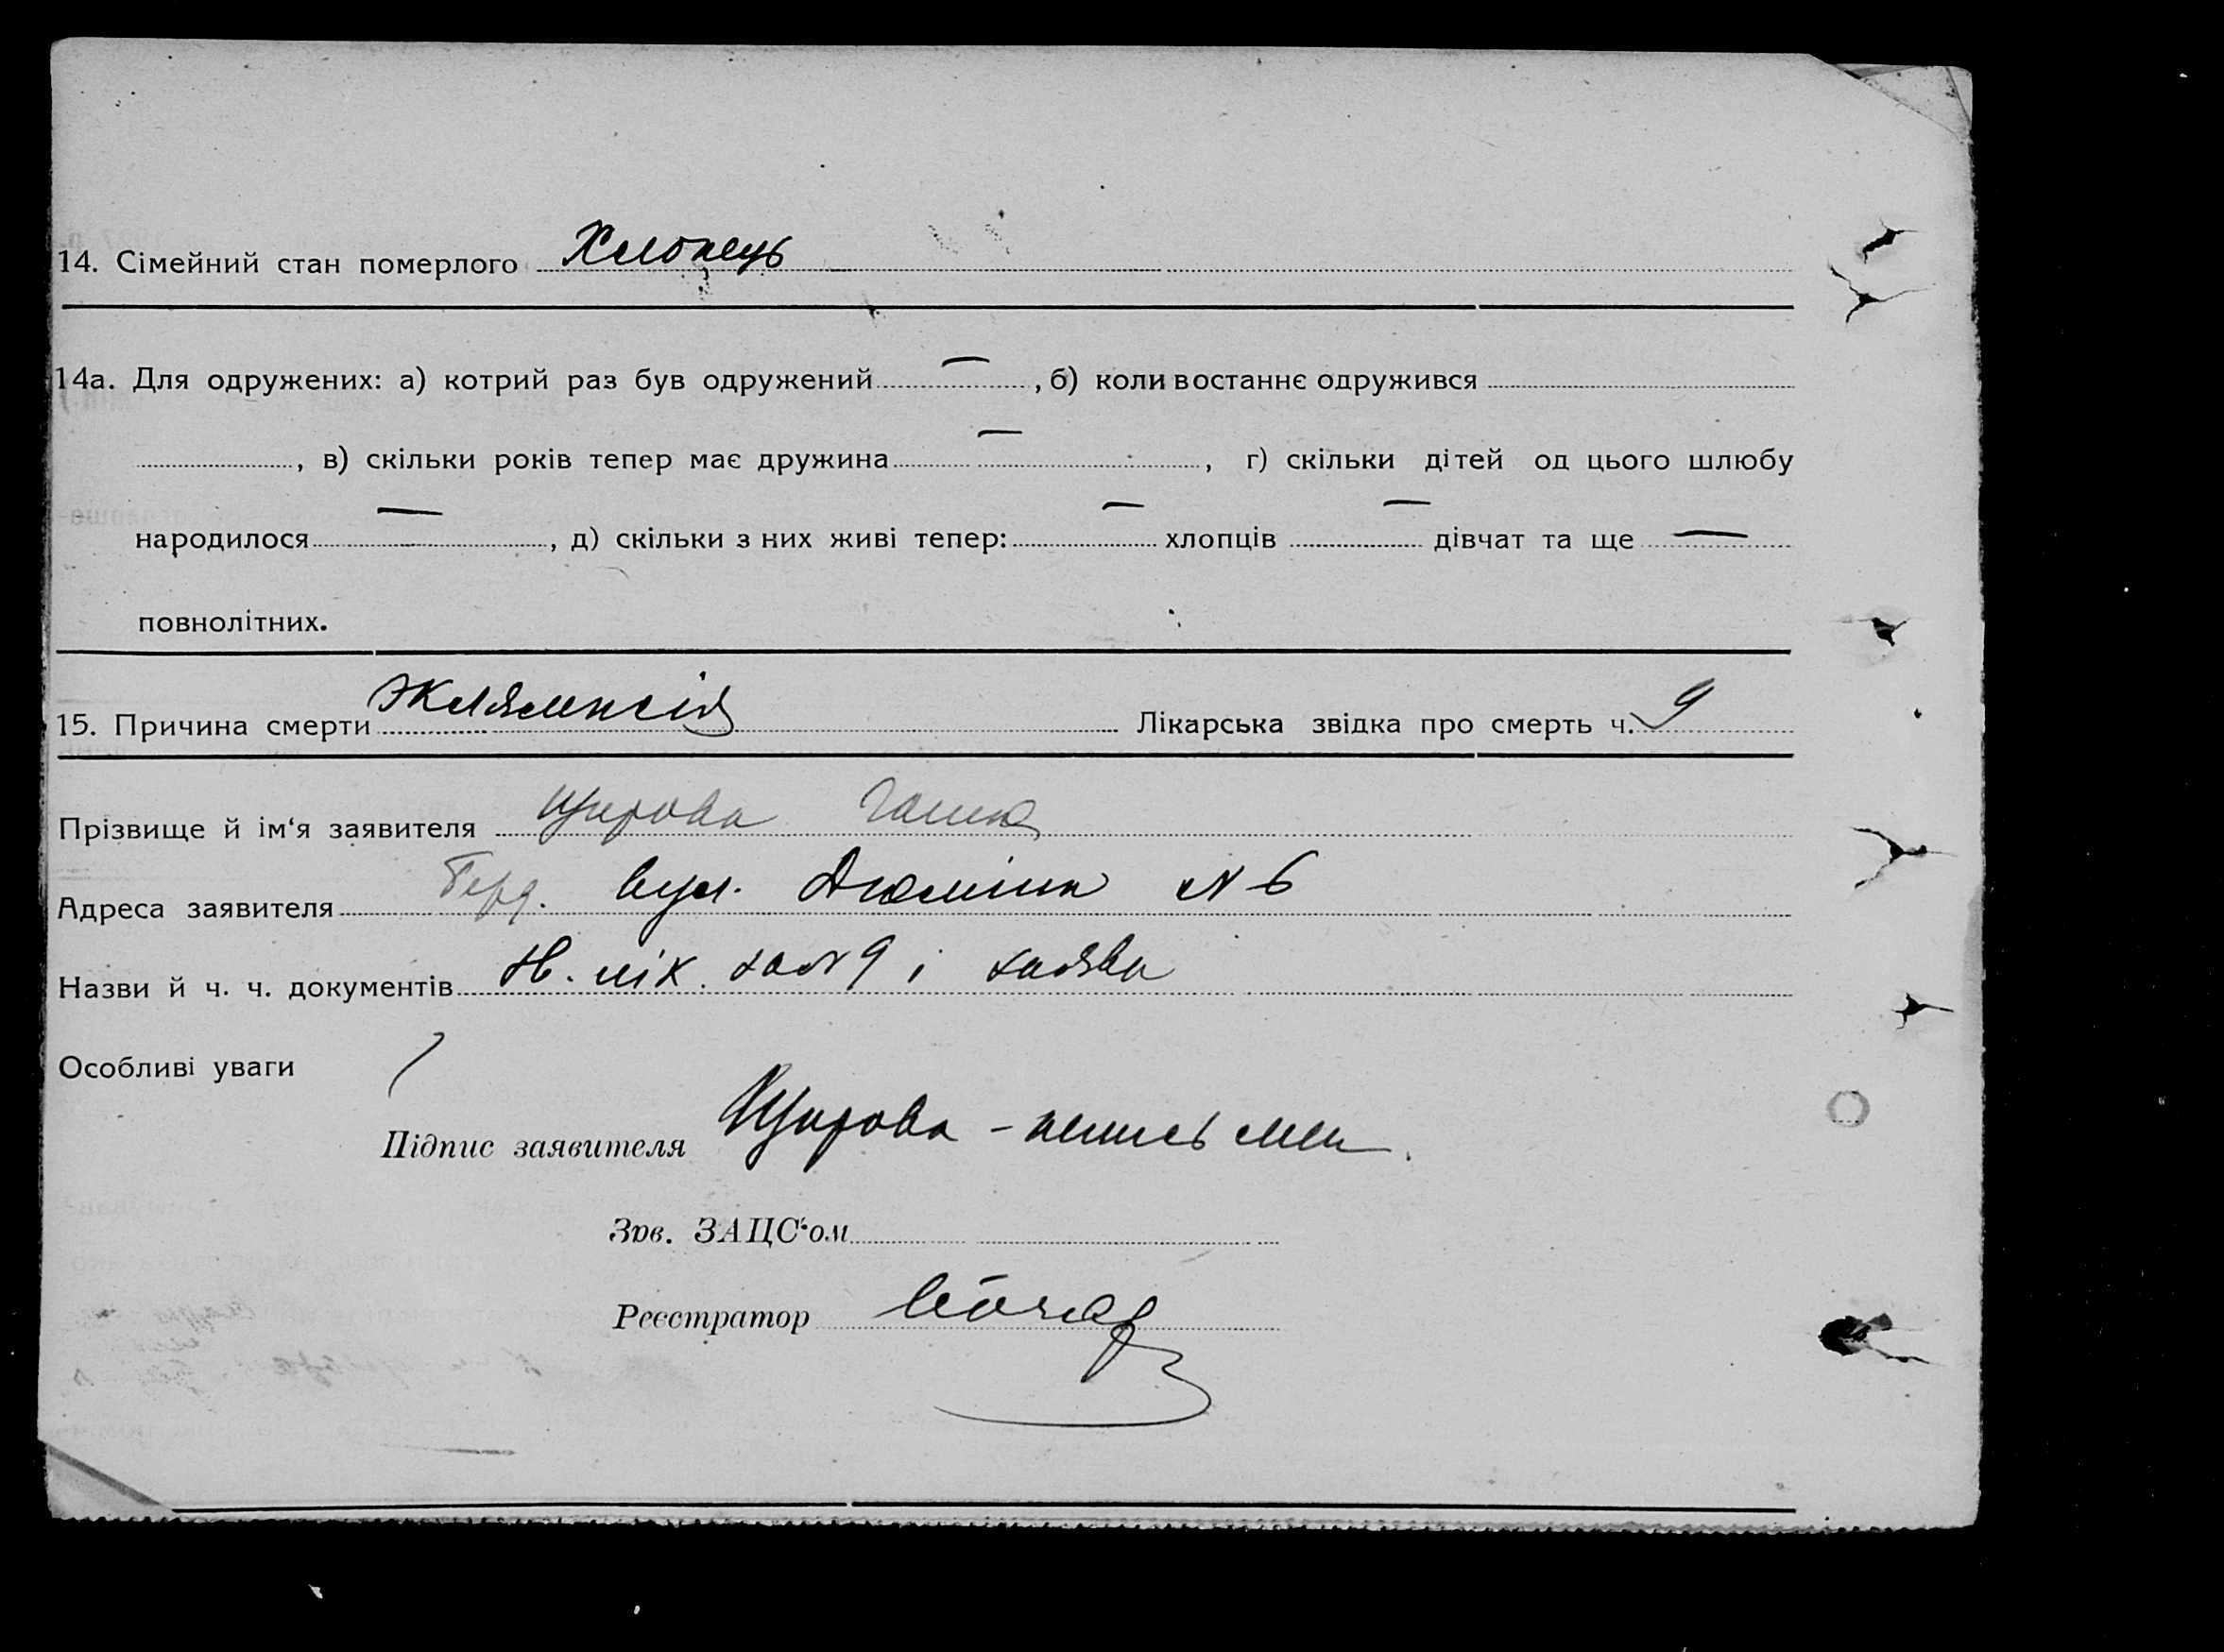 14. Сімейний стан померлого Хлопець
14а. Для одружених: а) котрий раз був одружений — , б) коли востаннє одружився
, в) скільки років тепер має дружина — , г) скільки дітей од цього шлюбу
народилося — , д) скільки з них живі тепер: — хлопців — дівчат та ще —
повнолітних.
15. Причина смерти Эклямпсія Лікарська звідка про смерть ч. 9
Прізвище й ім‘я заявителя Щирова Ганна
Адреса заявителя Берд. вул. Дюміна № 6
Назви й ч. ч. документів лік. за № 9 і заява
Особливі уваги
Підпис заявителя Щирова -
Зав. ЗАЦС‘ом
Реєстратор